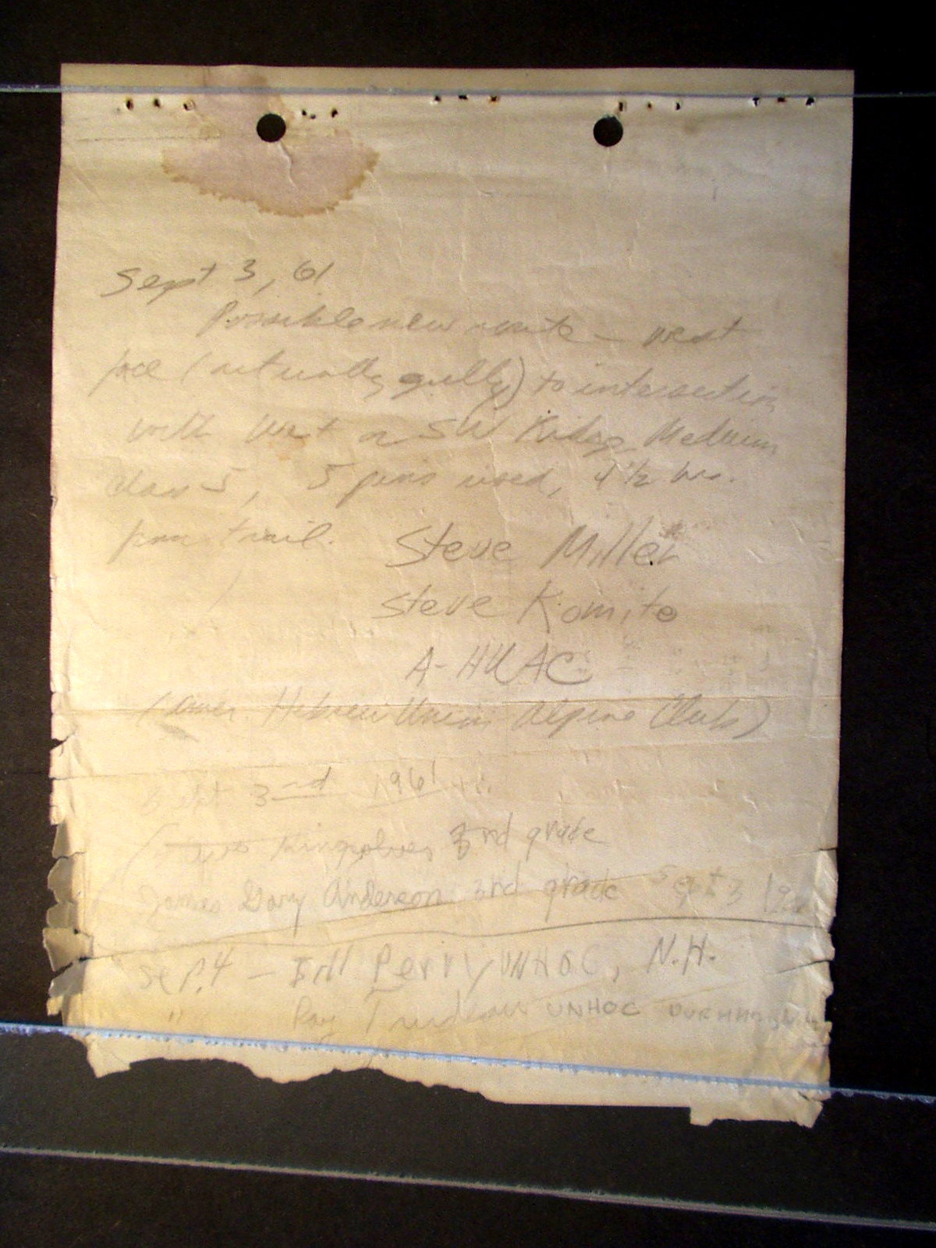 Sept 3, 61
Possible new route - west
face (actually gully) to intersection
with West or SW Ridge Medium
class 5, 5 pins used, 4 1/2 hrs.
from trail.
Steve Miller
Steve Komito
A-HUAC
(Amer. Hebrew Union Alpine Club)
Sept 3nd 1961
3rd grade
James Gary Anderson 3rd grade Sept 3
Sept. 4 - Bill Perry UNHOC, N.H.
" Ray UNHOC